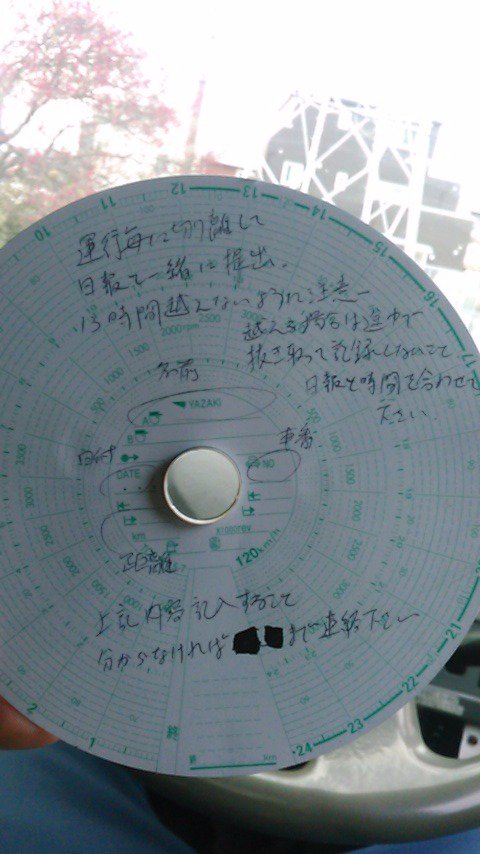 運行毎に切り離して
日報と一緒に提出。
13時間越えないように注意
越える場合は途中で
抜き取って記録しないこと
日報と時間を合わせて
下さい。
名前
YAZAKI
A
B
日付
車番
DATE
NO
km
x1000rev
距離
120km/h
上記内容記入すること
分からなければ
まで連絡下さい
終
km
1
2
10
11
12
13
14
15
16
17
21
22
23
24
2000rpm
2500
3000